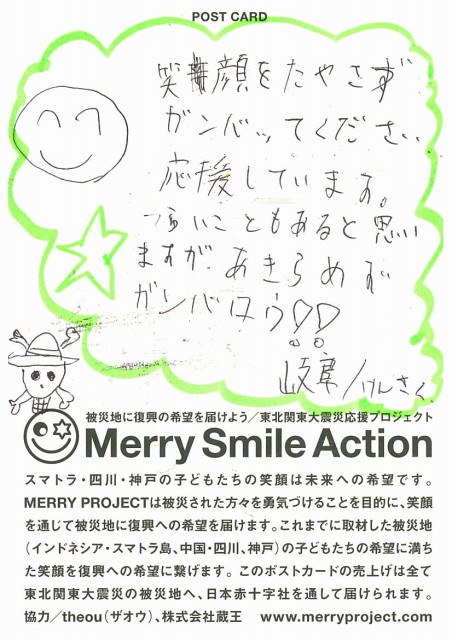 POST CARD
笑顔をたやさず
ガンバッてください
応援しています。
つらいこともあると思い
ますが、あきらめず
ガンバロウ!!
岐阜/けんさく
被災地に復興の希望を届けよう/東北関東大震災応援プロジェクト
Merry Smile Action
スマトラ・四川・神戸の子どもたちの笑顔は未来への希望です。
MERRY PROJECTは被災された方々を勇気づけることを目的に、笑顔
を通じて被災地に復興への希望を届けます。これまでに取材した被災地
(インドネシア・スマトラ島、中国・四川、神戸)の子どもたちの希望に満ち
た笑顔を復興への希望に繋げます。このポストカードの売上げは全て
東北関東大震災の被災地へ、日本赤十字社を通して届けられます。
協力/theou(ザオウ)、株式会社蔵王 www.merryproject.com